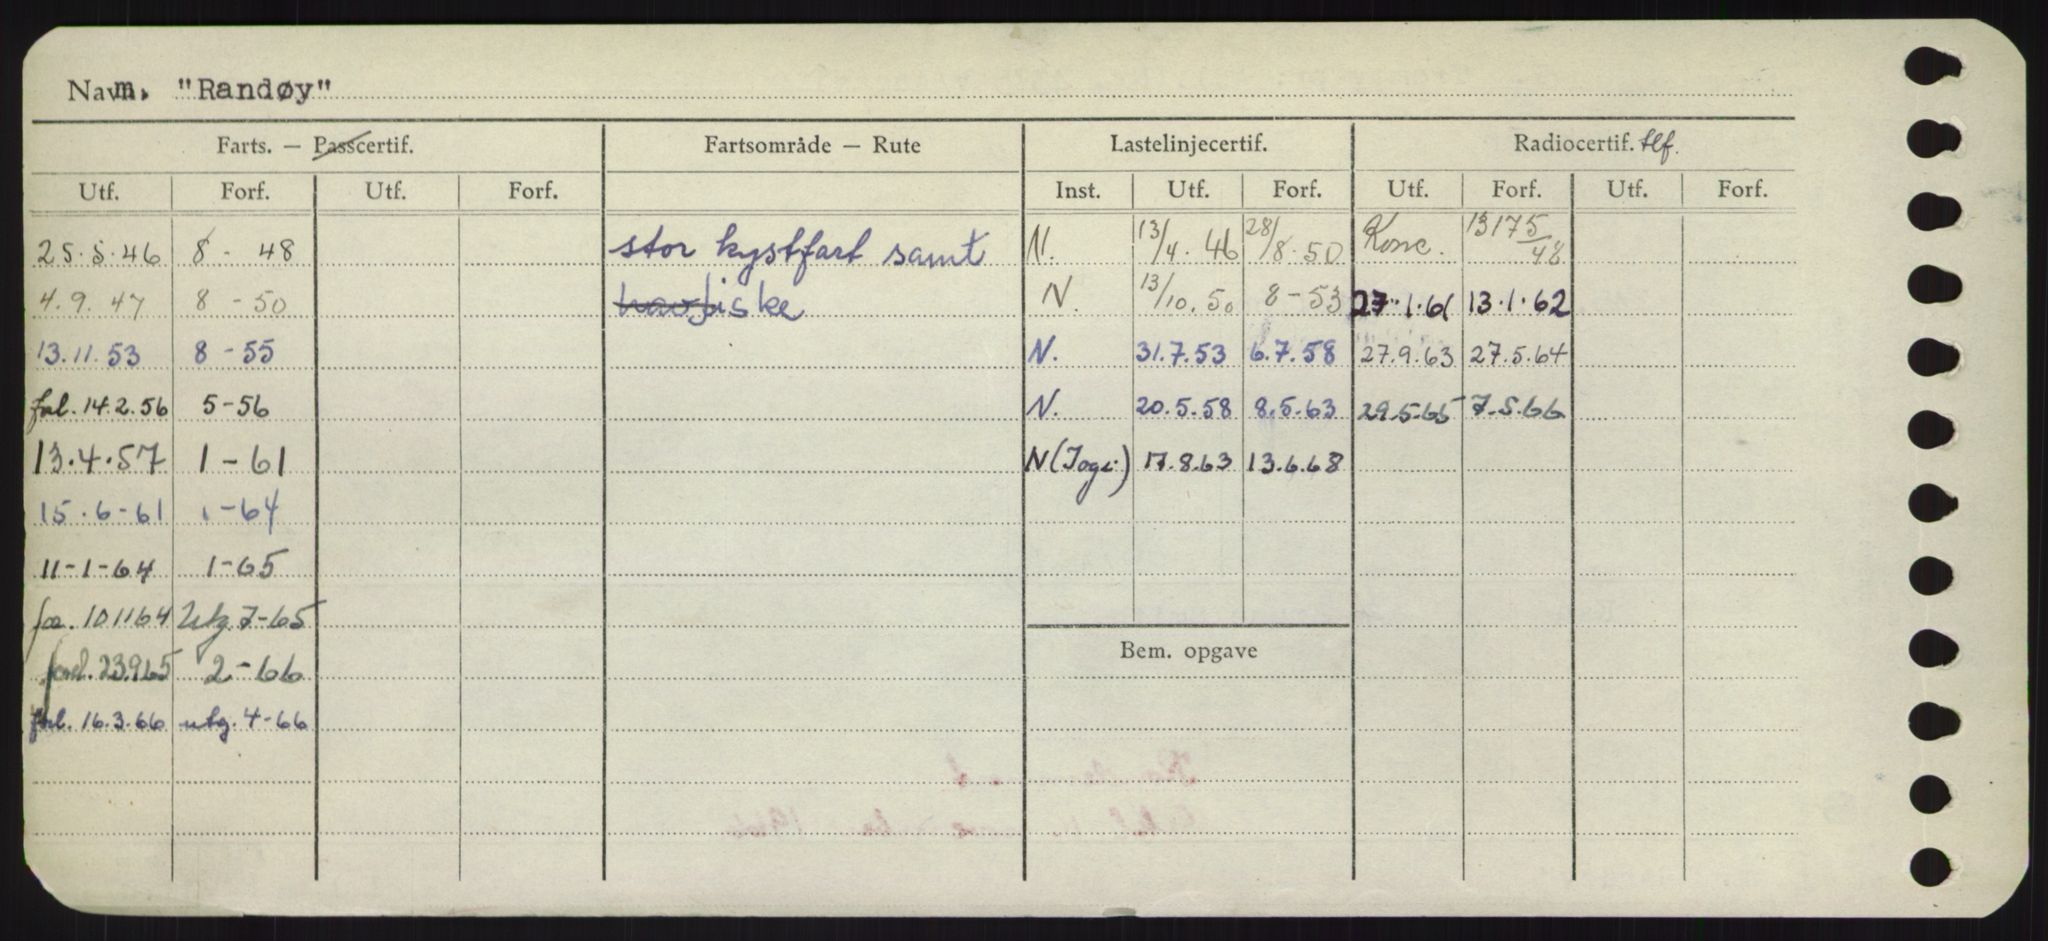 Navn. m. "Randøy"
Farts. — Passcertif. Fartsområde — Rute Lastelinjecertif. Radiocertif. tlf.
Utf. Forf. Utf. Forf. Inst. Utf. Forf. Utf. Forf. Utf. Forf.
25.5.46 8 - 48 stor kystfart samt N. 13/4.46 28/8.50 Konc. 13175/48
4.9.47 8 - 50 havfiske N. 13/10.50 8 - 53 27.1.61 13.1.62
13.11.53 8 - 55 N. 31.7.53 6.7.58 27.9.63 27.5.64
forl. 14.2.56 5-56 N. 20.5.58 8.5.63 29.5.65 7.5.66
13.4.57 1 - 61 N (Joge:) 17.8.63 13.6.68
15.6-61 1-64
11-1-64 1-65
101164 Utg. 7-65
forl. 23.9.65 2-66
forl. 16.3.66 utg. 4-66
Bem. opgave